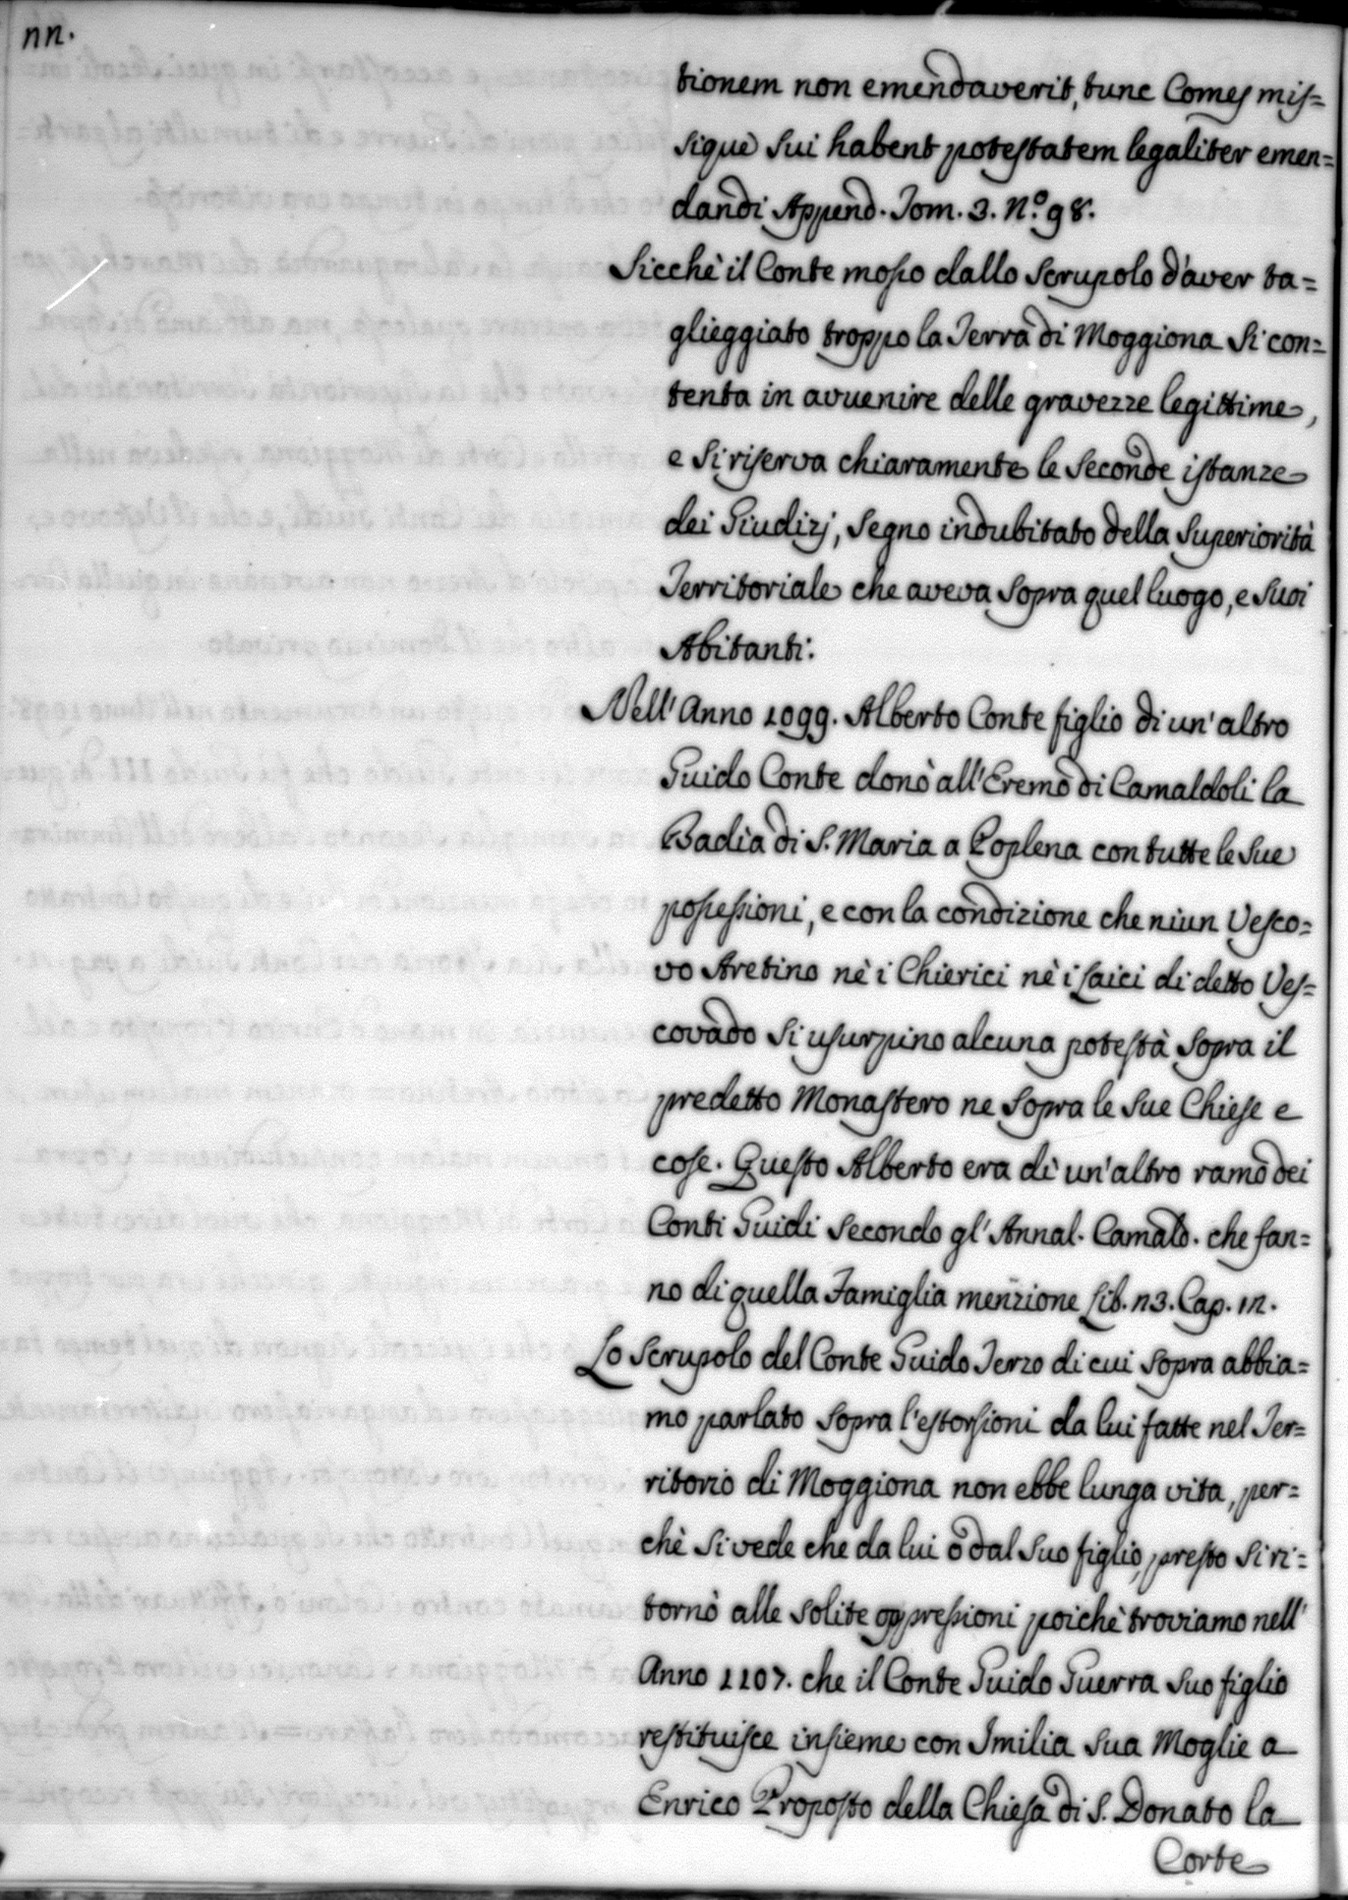 nn.
tionem non emendaverit, tunc Comes mis=
sique sui habent potestatem legaliter emen=
dandi Append. Tom. 3. N.º 98.
Sicchè il Conte mosso dallo scrupolo d'aver ta=
glieggiato troppo la Terra di Moggiona si con=
tenta in avuenire delle gravezze legittime,
e si riserva chiaramente le seconde istanze
dei Giudizj, segno indubitato della Superiorità
Territoriale che aveva sopra quel luogo, e suoi
Abitanti.
Nell' Anno 1099. Alberto Conte figlio di un' altro
Guido Conte donò all' Eremo di Camaldoli la
Badìa di S. Maria a Poplena con tutte le sue
possessioni, e con la condizione che niun Vesco=
vo Aretino nè i Chierici nè i Laici di detto Ves=
covado si usurpino alcuna potestà sopra il
predetto Monastero ne sopra le sue Chiese e
cose. Questo Alberto era di un' altro ramo dei
Conti Guidi secondo gl' Annal. Camald. che fan=
no di quella Famiglia menzione Lib. n3. Cap. 1n.
Lo Scrupolo del Conte Guido Terzo di cui sopra abbia=
mo parlato sopra l'estorsioni da lui fatte nel Ter=
ritorio di Moggiona non ebbe lunga vita, per=
chè si vede che da lui o dal suo figlio, presto si ri=
tornò alle solite oppressioni poichè troviamo nell'
Anno 1107. che il Conte Guido Guerra suo figlio
restituisce insieme con Imilia sua Moglie a
Enrico Proposto della Chiesa di S. Donato la
Corte